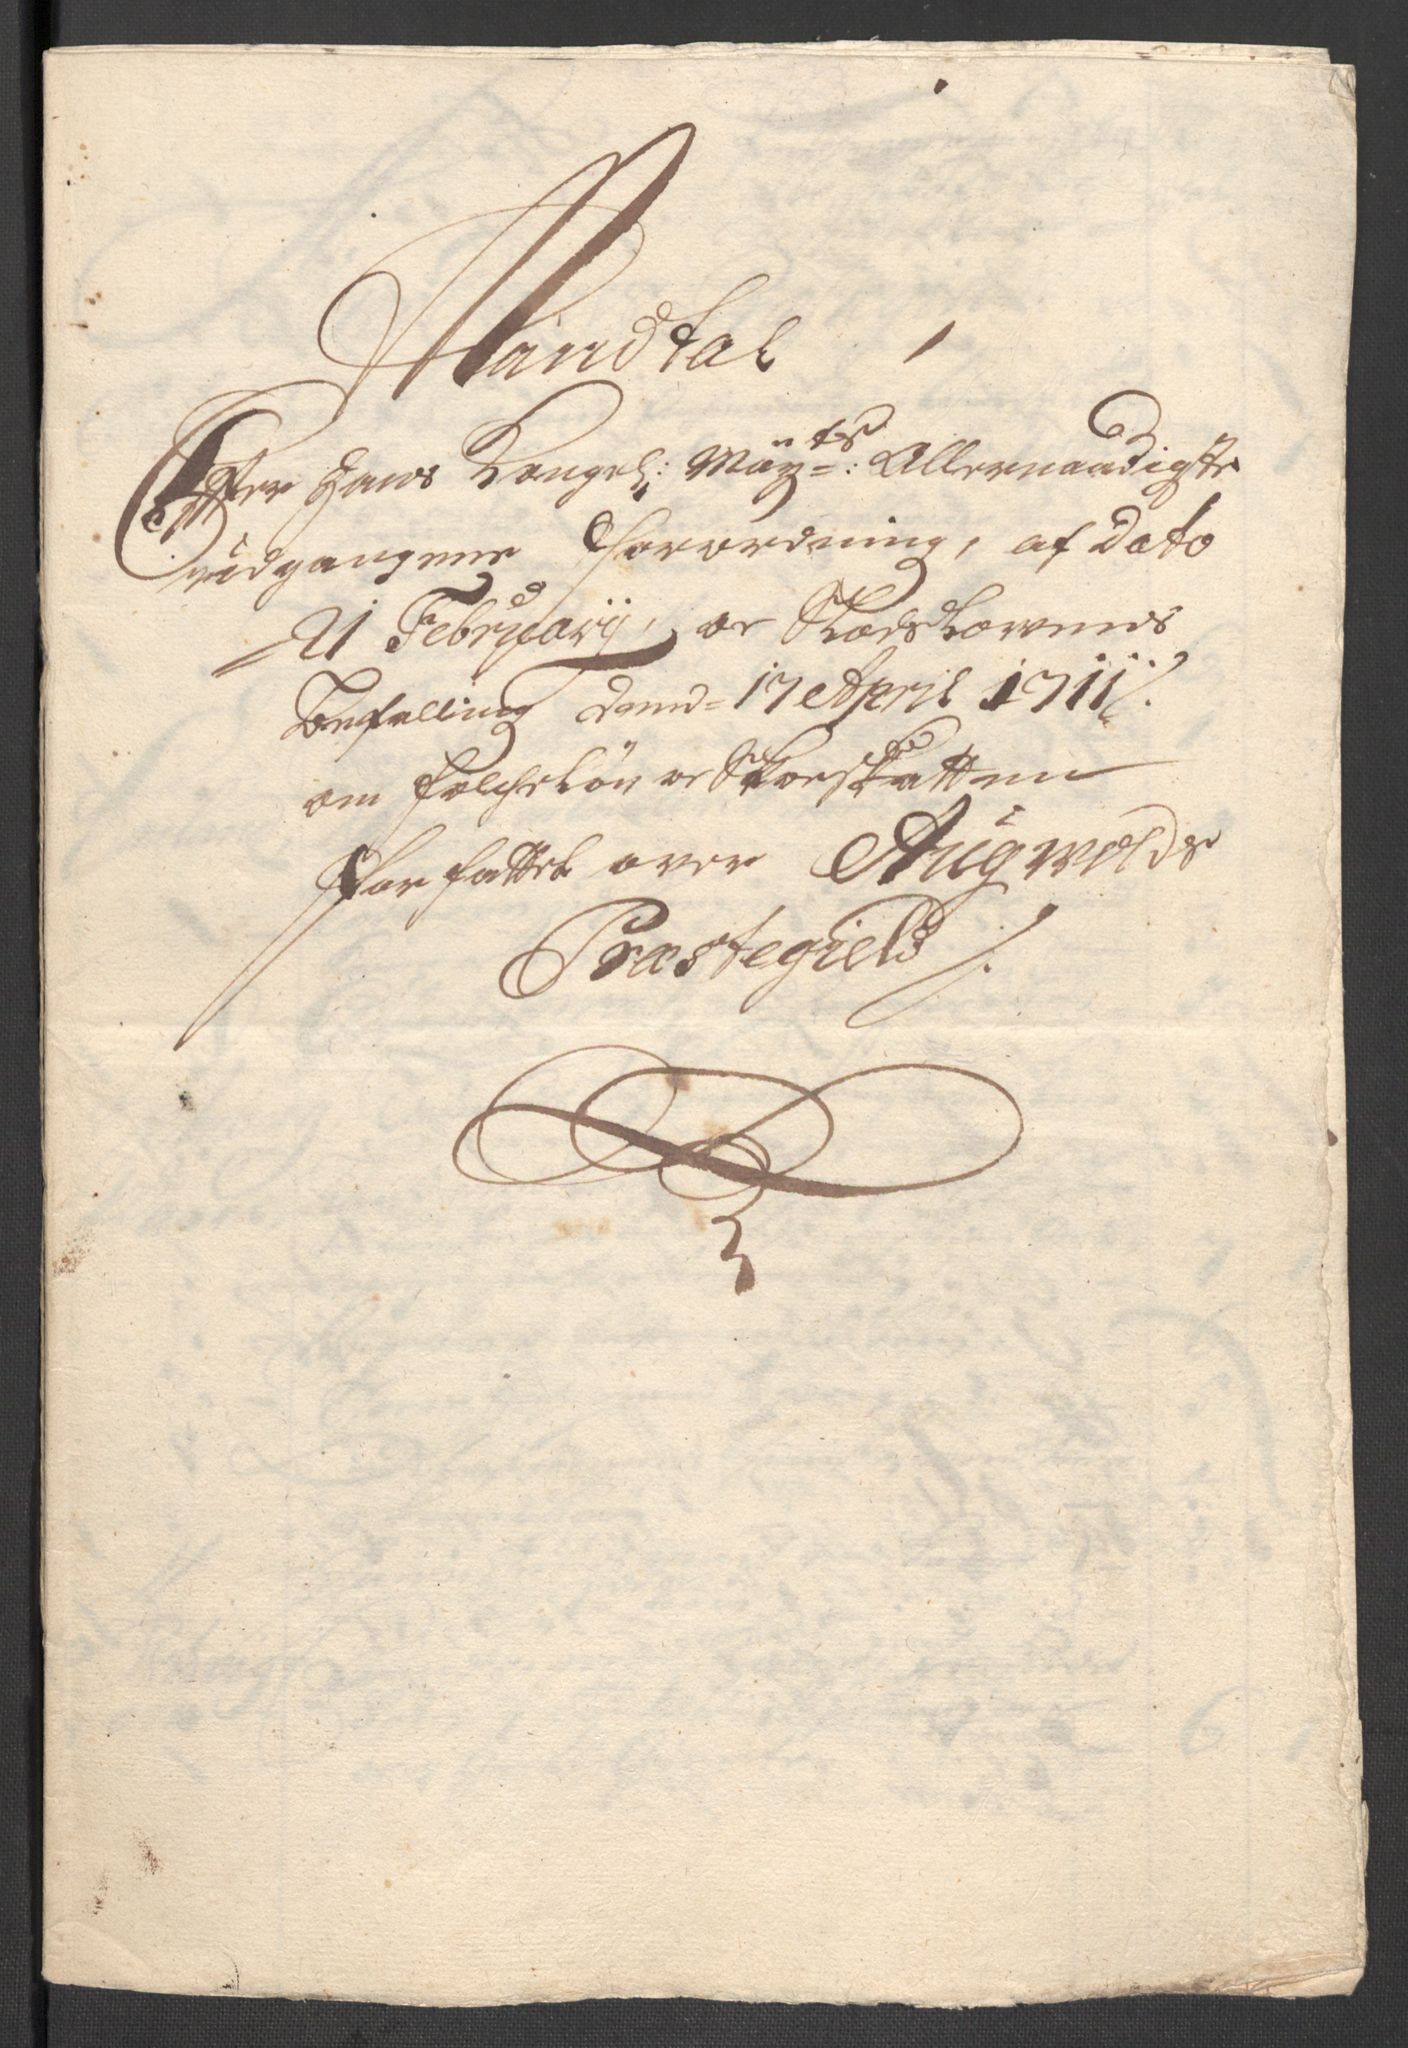 Mandtal
Efter Hans Kongel: Mäy:ts: Allernaadigste
udgangene Forordning, af Dato
21 Februarij, oc Slodslovens
Befalling dend 17 April 1711.
om Folcheløn oc Skoeskatten
Forfattet over Augvolds
Præstegield